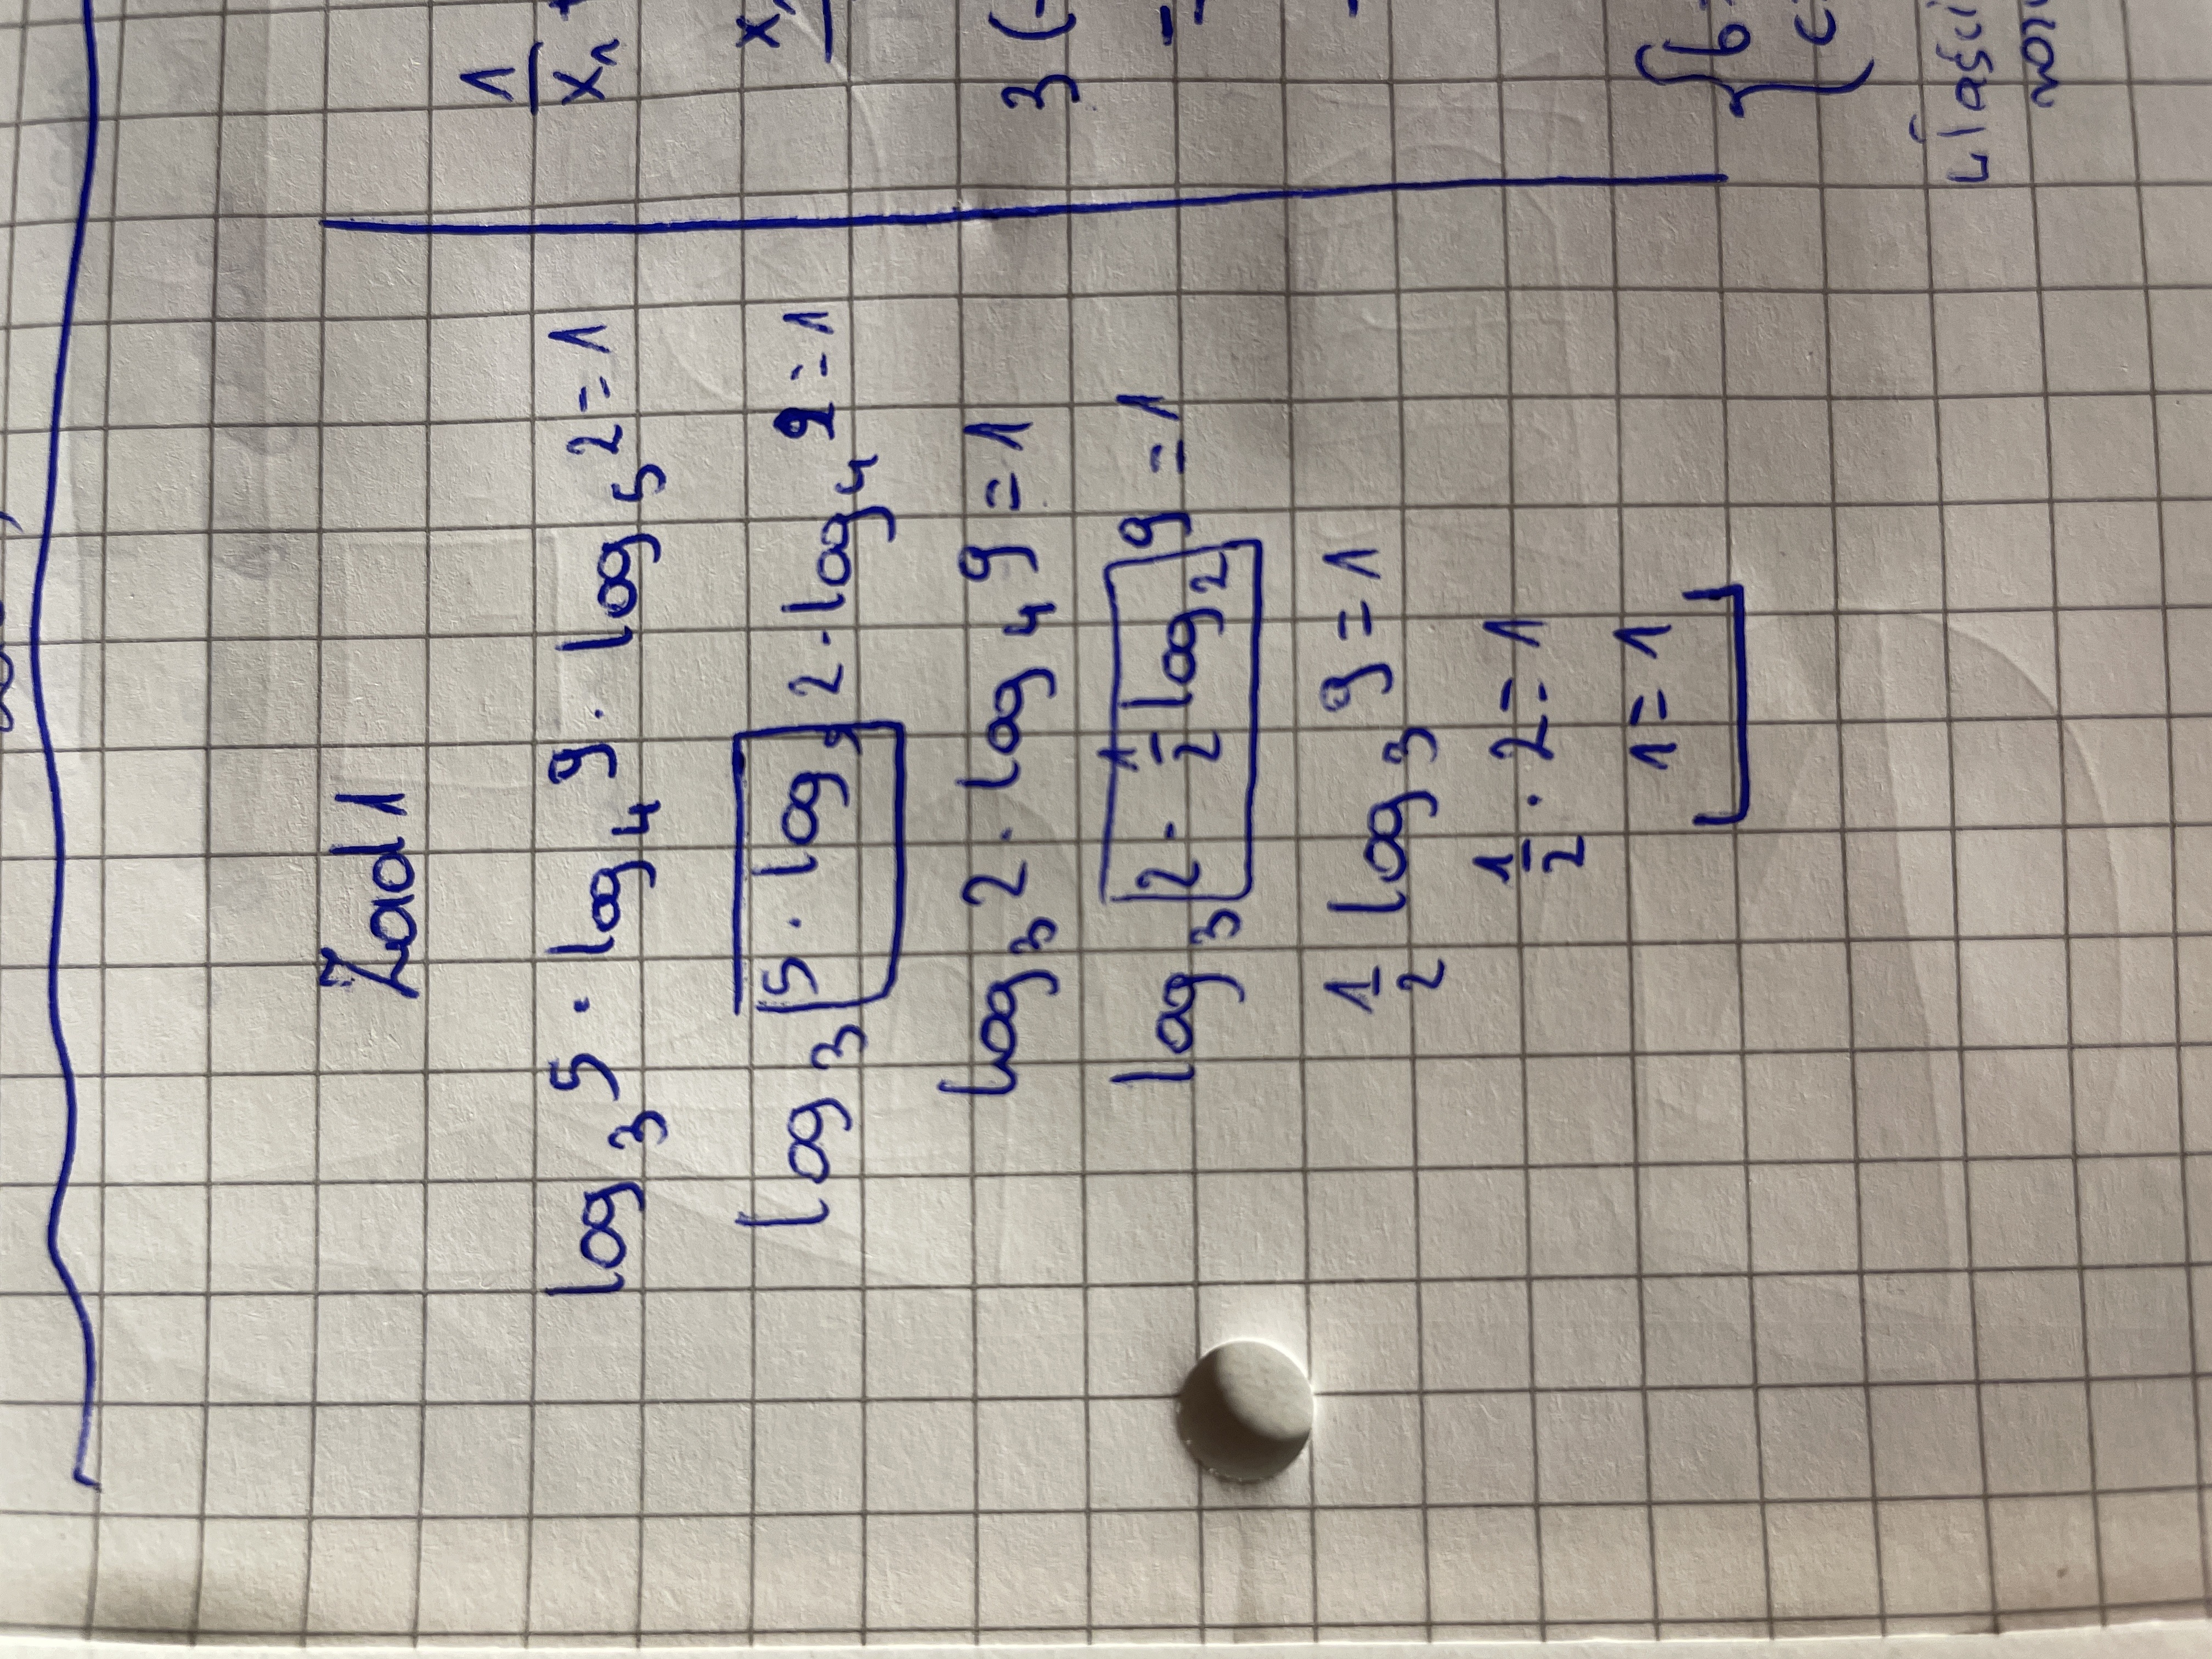 Zad 1
log₃ 5 · log₄ 9 · log₅ 2 = 1
log₃ 5 · log₅ 2 · log₄ 9 = 1
log₃ 2 · log₄ 9 = 1
log₃ 2 · 1/2 log₂ 9 = 1
1/2 log₃ 9 = 1
1/2 · 2 = 1
1 = 1
1/x₁ +
3(-